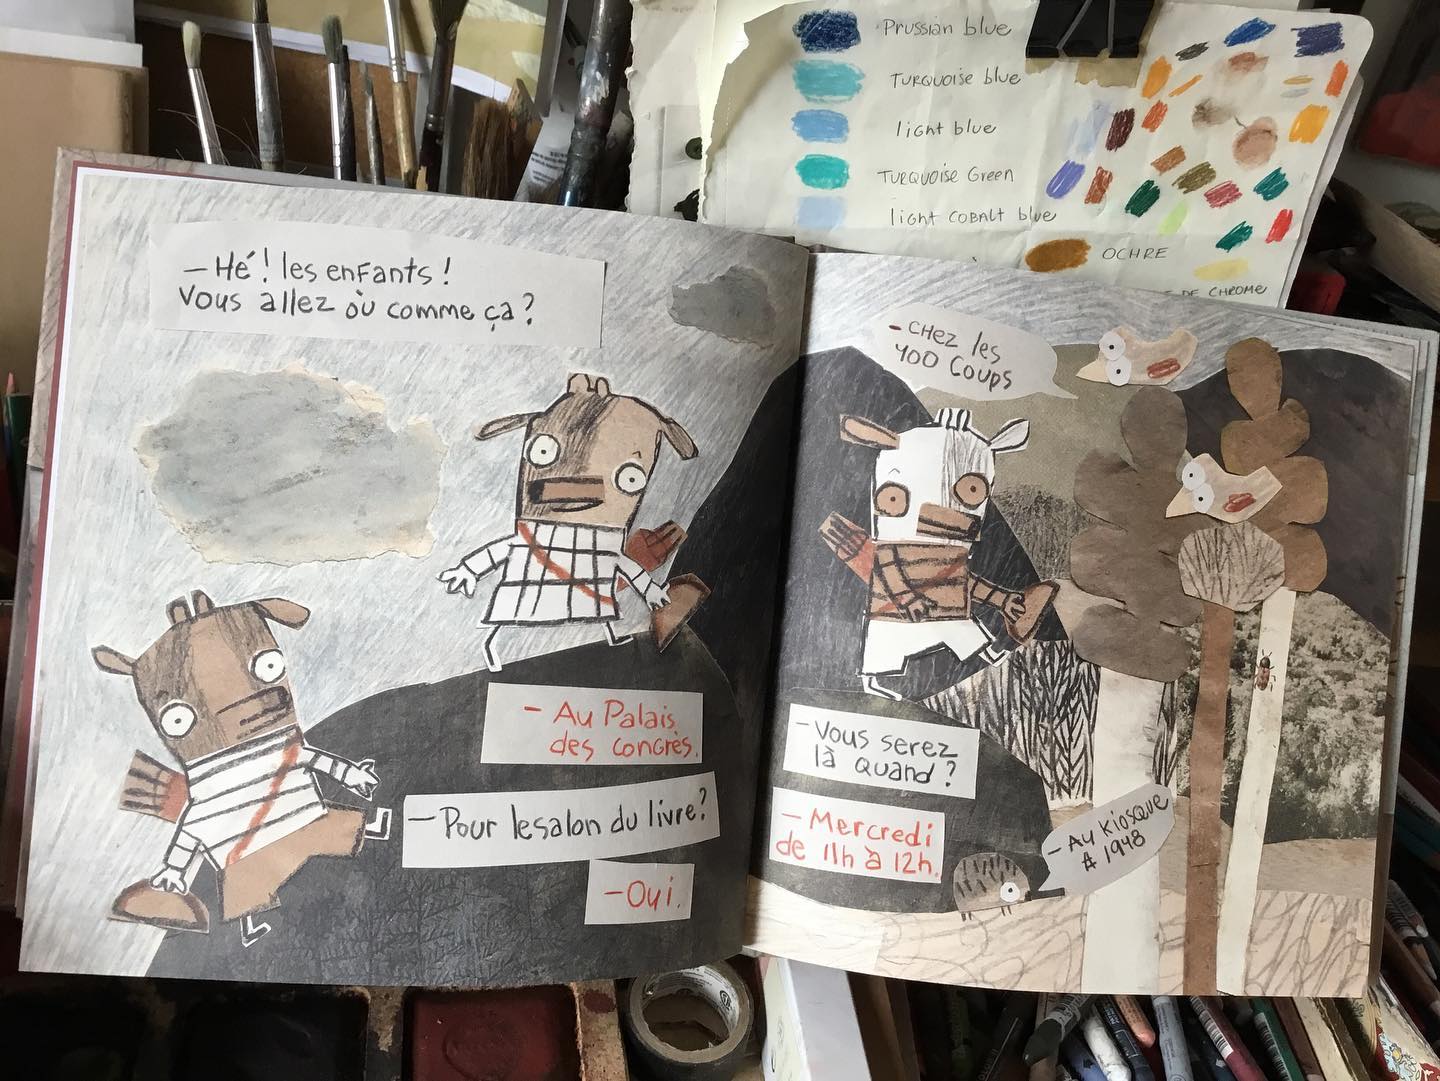 Prussian blue
TURQUOISE blue
light blue
TURQUOISE Green
light COBALT blue
OCHRE
DE CHROME
— Hé! les enfants!
Vous allez où comme ça?
- Au Palais
des congrès.
— Pour le salon du livre?
- Oui.
- CHEZ les
400 Coups
- Vous serez
là quand?
- Mercredi
de 11h à 12h.
- Au Kiosque
# 1948